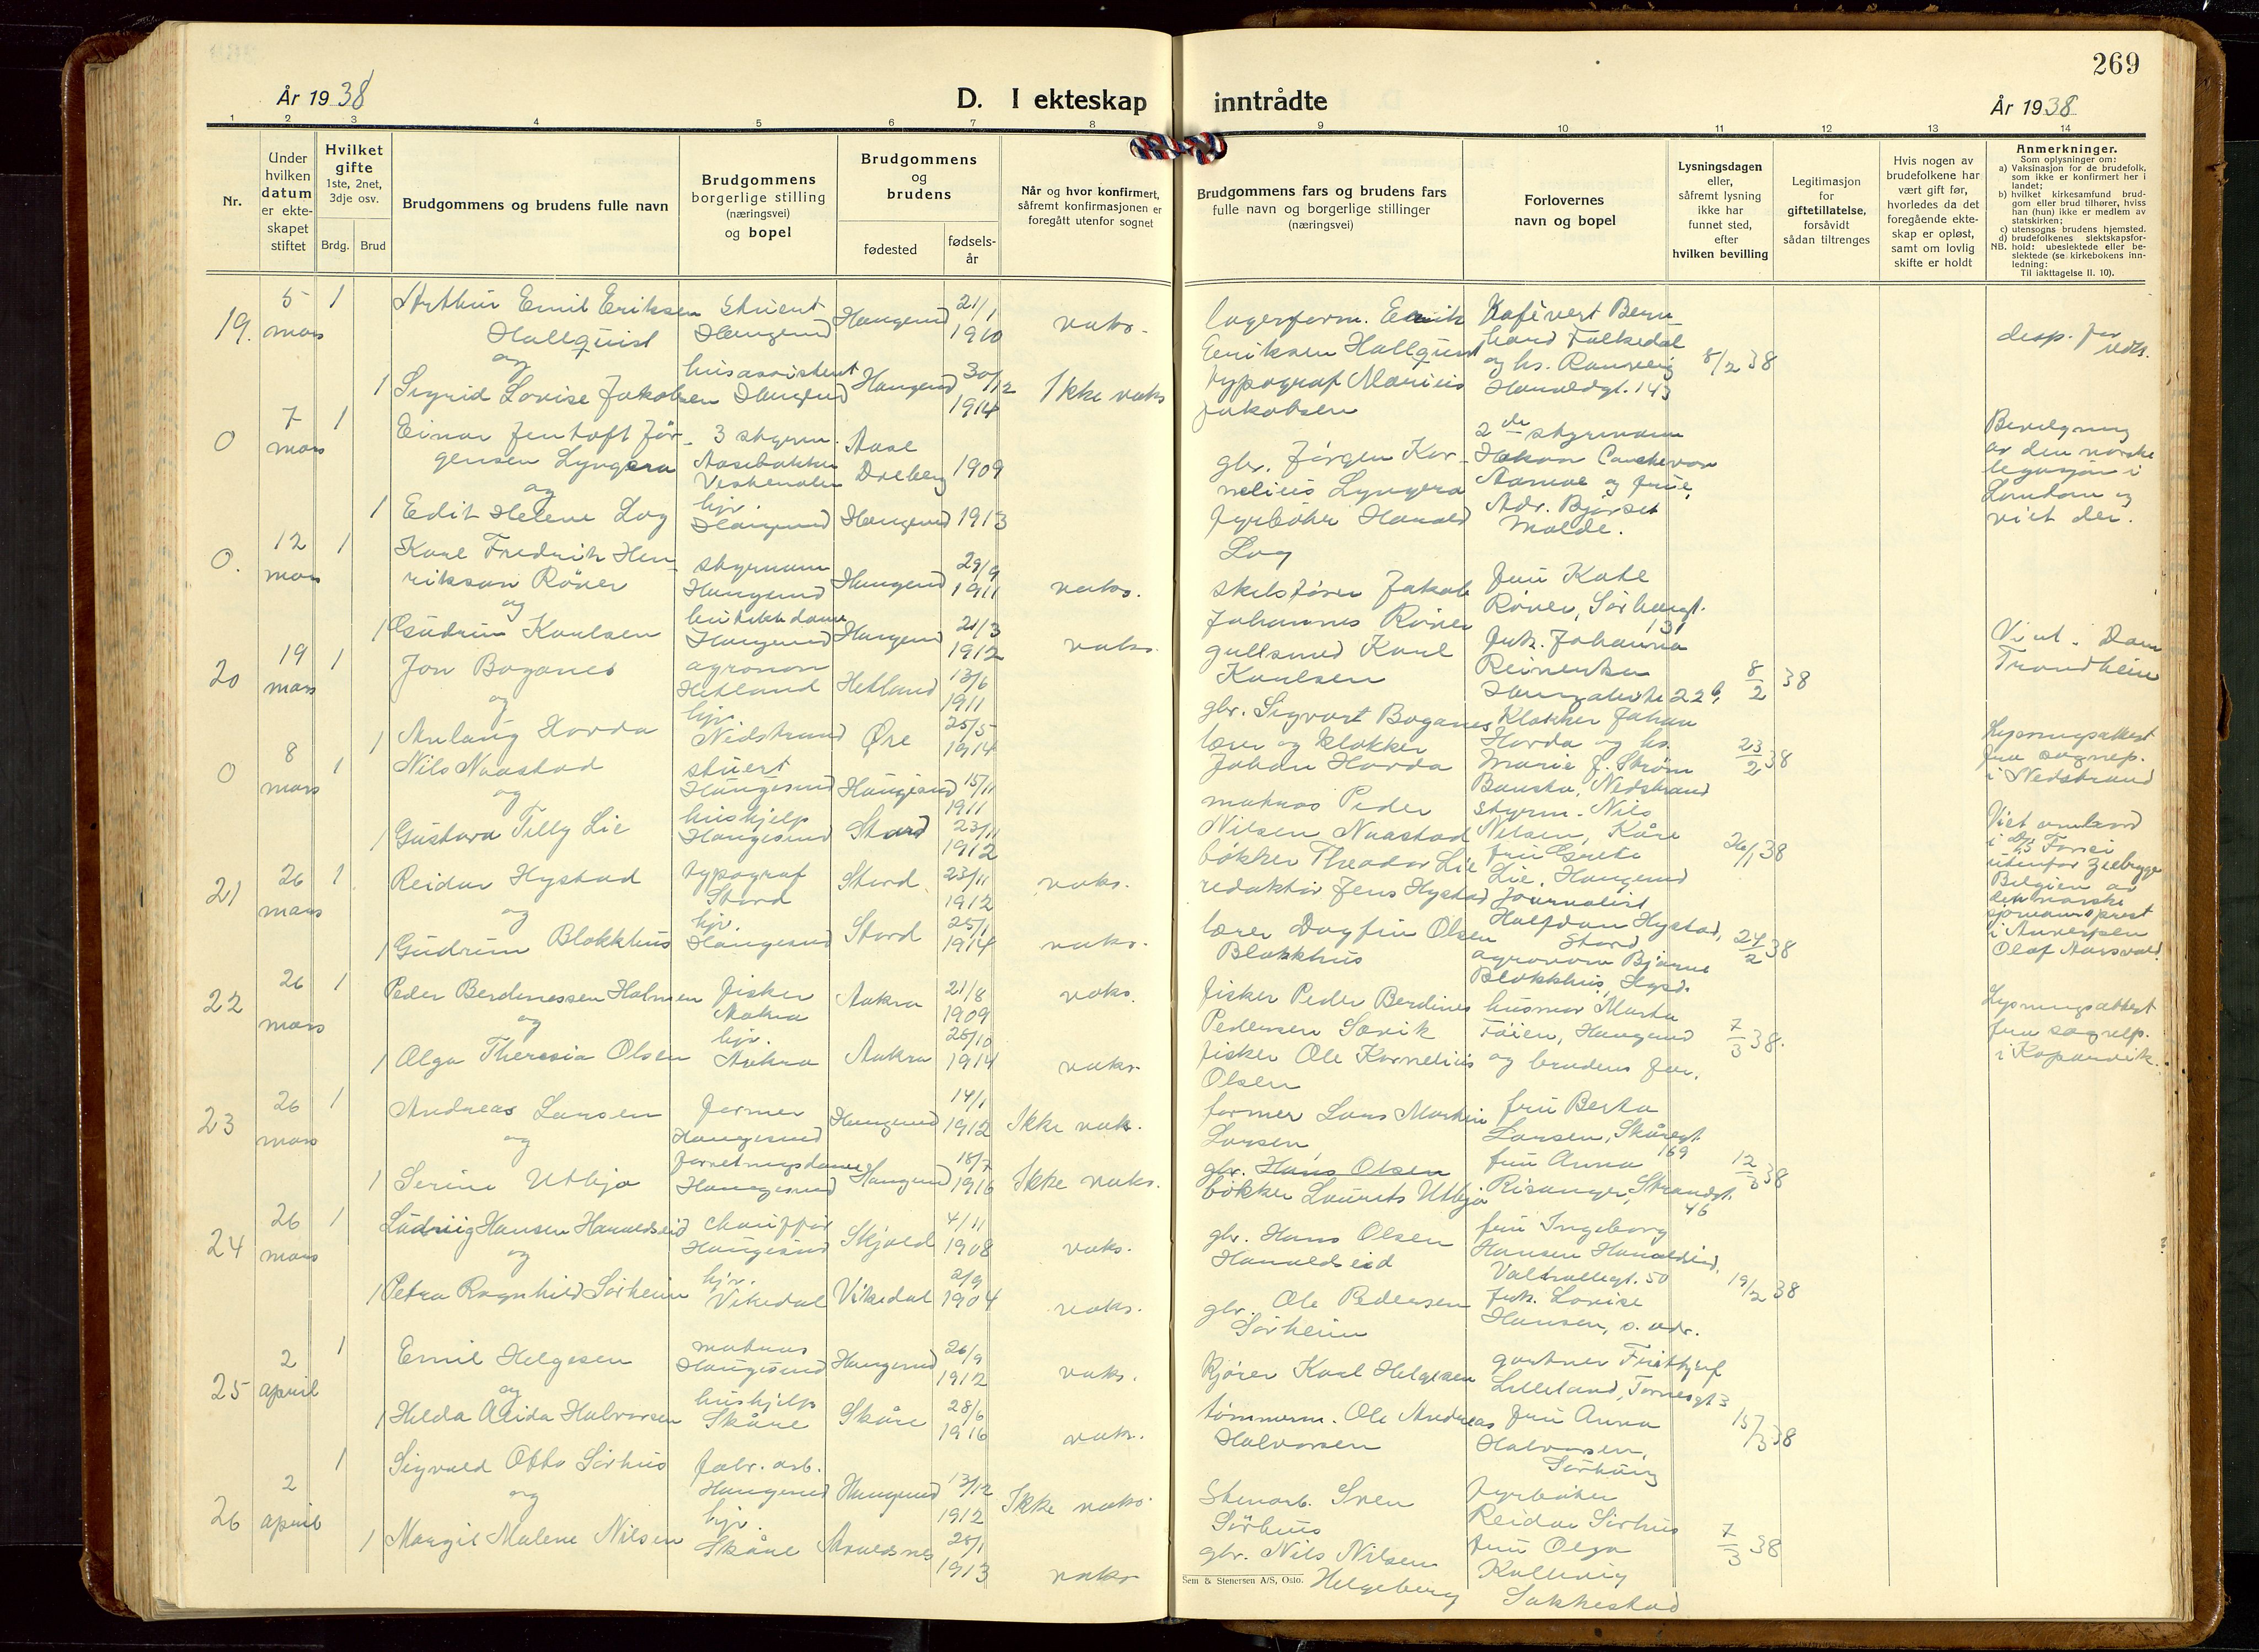 269
År 1938
D. I ekteskap inntrådte
År 1938
1 2 3 4 5 6 7 8 9 10 11 12 13 14
Nr.
Under hvilken datum er ekteskapet stiftet
Hvilket gifte 1ste, 2net, 3dje osv.
Brdg. Brud
Brudgommens og brudens fulle navn
Brudgommens borgerlige stilling (næringsvei) og bopel
Brudgommens og brudens
fødested
fødsels-år
Når og hvor konfirmert, såfremt konfirmasjonen er foregått utenfor sognet
Brudgommens fars og brudens fars fulle navn og borgerlige stillinger (næringsvei)
Forlovernes navn og bopel
Lysningsdagen eller, såfremt lysning ikke har funnet sted, efter hvilken bevilling
Legitimasjon for giftetillatelse, forsåvidt sådan tiltrenges
Hvis nogen av brudefolkene har vært gift før, hvorledes da det foregående ekteskap er opløst, samt om lovlig skifte er holdt
Anmerkninger.
Som oplysninger om:
a) Vaksinasjon for de brudefolk, som ikke er konfirmert her i landet;
b) hvilket kirkesamfund brudgom eller brud tilhører, hviss han (hun) ikke er medlem av statskirken;
c) utensogns brudens hjemsted.
d) brudefolkenes slektskapsforhold: ubeslektede eller beslektede (se kirkebokens innledning:
NB. Til iakttagelse II. 10).
19. 5 mars 1
Arthur Emil Eriksen Hallquist
stuert Haugesund
Haugesund 21/1 1910
vaks.
lagerform. Erik Eriksen Hallquist
Kafévert Bernhard Falkedal og hs. Rannveig Haraldsgt. 143
8/2 38
og
1 Sigrid Lovise Jakobsen
husassistent Haugesund
Haugesund 30/12 1914
Ikke vaks
typograf Marius Jakobsen
0 7 mars 1
Einar Jentoft Jørgensen Lyngera
3 styrm. Aasebakken Vesteraalen
1909
gbr. Jørgen Kornelius Lyngera
2den styrmann
Aarnoe og frue, Adr. Bjørset Molde.
Bevilgning av den norske legasjon i London og viet der.
og
1 Edit Helene Log
hjv. Haugesund
Haugesund 1913
fyrbøter Harald Log
0. 12 mars 1
Karl Fredrik Henriksen Røver
styrmann Haugesund
Haugesund 29/9 1911
vaks.
skibsfører Jakob Johannes Røver
fru Kate Røver, Sørhauggt. 131
Viet i Dom Trondheim
og
1 Gudrun Karlsen
butikkdame Haugesund
Haugesund 21/3 1912
vaks.
gullsmed Karl Karlsen
frk. Johanna Reinertsen
8/2 38
20 19 mars 1
Jon Boganes
agronom Hetland
Hetland 13/6 1911
gbr. Sigvart Boganes
Klokker Johan Horda og hs. Marie f. Strøm
23/2 38
Lysningsattest fra sognep. i Nedstrand
og
1 Aslaug Horda
hjv. Nedstrand
Øre 25/5 1914
lærer og klokker Johan Horda
0 8 mars 1
Nils Naastad
stuert Haugesund
Haugesund 15/11 1911
matros Peder Nilsen Naastad
styrm. Nils Nilsen, Kåre
26/1 38
Viet ombord i D/S Torfei utenfor Zeebrygge Belgien av den norske sjømannsprest i Antverpen Olaf Aarsvold
og
1 Gustava Tilly Lie
hushjelp Haugesund
Stord 23/11 1912
bøkker Theodor Lie
fru Grete Lie, Haugesund
21 26 mars 1
Reidar Hystad
typograf Stord
Stord 23/11 1912
vaks.
redaktør Jens Hystad
Journalist Halfdan Hystad, Stord
24/2 38
og
1 Gudrun Blokkhus
hjv. Haugesund
Stord 25/1 1914
vaks.
lærer Dagfin Olsen Blokkhus
agronom Bjarne Blokkhus, Hgsd.
22 26 mars 1
Peder Berdinessen Holmen
fisker Aakra
Aakra 21/8 1909
vaks.
fisker Peder Berdines Pedersen Sævik
husmor Marta Føien, Haugesund
7/3 38.
Lysningsattest fra sognep. i Kopervik.
og
1 Olga Theresia Olsen
hjv. Aakra
Aakra 25/10 1914
vaks.
fisker Ole Kornelius Olsen
og brudens far.
23 26 mars 1
Andreas Larsen
former Haugesund
Haugesund 14/1 1912
Ikke vak.
former Lars Martin Larsen
fru Berta Larsen, Skåregt. 169
12/3 38
og
1 Serine Utbjo
forretningsdame Haugesund
Haugesund 18/7 1916
Ikke vaks.
gbr. Hans Olsen
bøkker Laurits Utbjo
fru Anna Risanger, Strandgt. 46
24 26 mars 1
Ludvig Hansen Haraldseid
chauffør Haugesund
Skjold 4/11 1908
vaks.
gbr. Hans Olsen Haraldseid
fru Ingeborg Hansen Haraldseid, Valhallegt. 50
19/2 38
og
1 Petra Ragnhild Sørheim
hjv. Vikedal
Vikedal 2/9 1904
vaks.
gbr. Ole Pedersen Sørheim
frk. Lovise Hansen, s. adr.
25 2 april 1
Emil Helgesen
matros Haugesund
Haugesund 26/9 1912
vaks.
kjører Karl Helgesen
gartner Fritthjof Lilleland, Tornesgt 3
15/3 38
og
1 Helda Alida Halvorsen
hushjelp Skåre
Skåre 28/6 1916
vaks.
tømmerm. Ole Andreas Halvorsen
fru Anna Halvorsen, Sørhaug
26 2 april 1
Sigvald Otto Sørhus
fabr. arb. Haugesund
Haugesund 13/12 1912
Ikke vaks.
Stenarb. Sven Sørhus
fyrbøter Reidar Sørhus
7/3 38
og
1 Margit Malene Nilsen
hjv. Skåre
Avaldsnes 25/1 1913
vaks
gbr. Nils Nilsen Helgeberg
fru Olga Kallevig Sakkestad
desp. for vaks.
Sem & Stenersen A/S, Oslo.